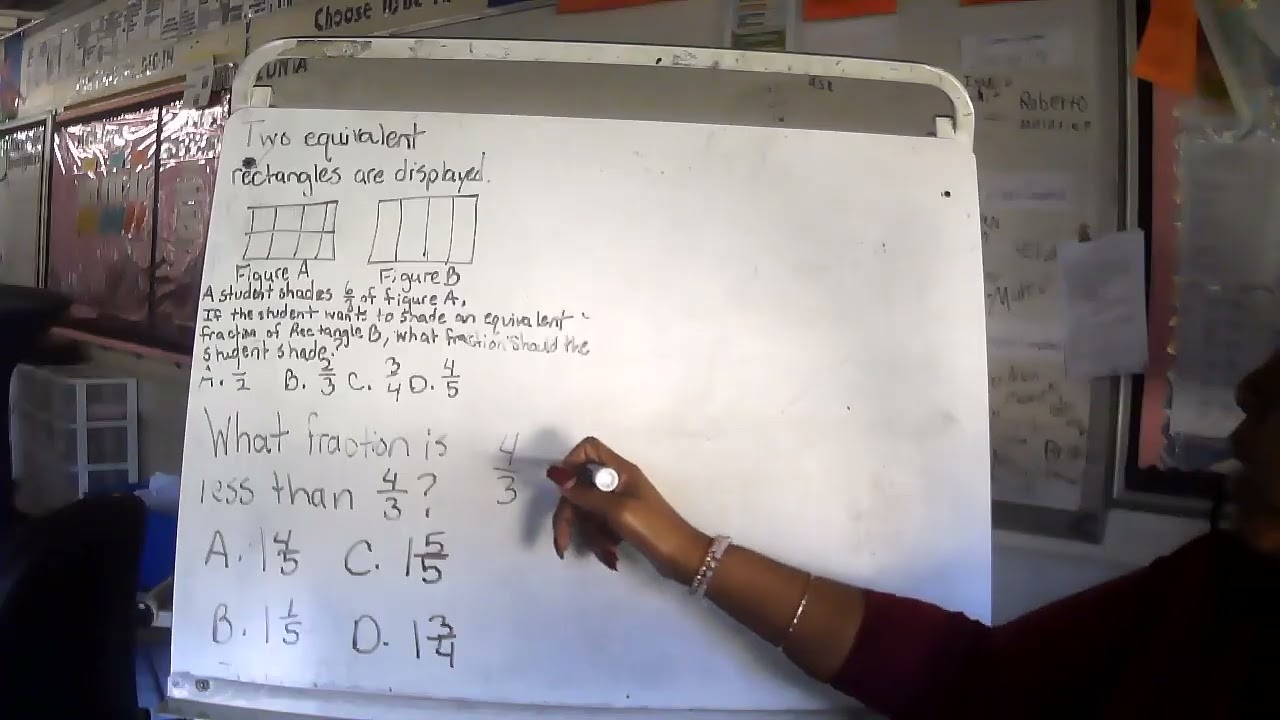 Choose
Two equivalent
rectangles are displayed.
Figure A
Figure B
A student shades 6/8 of figure A.
If the student wants to shade an equivalent
fraction of Rectangle B, what fraction should the
student shade?
A. 1/2 B. 2/3 C. 3/4 D. 4/5
What fraction is
less than 4/3?
4/3
A. 1 4/5 C. 1 5/5
B. 1 1/5 D. 1 3/4
Roberto